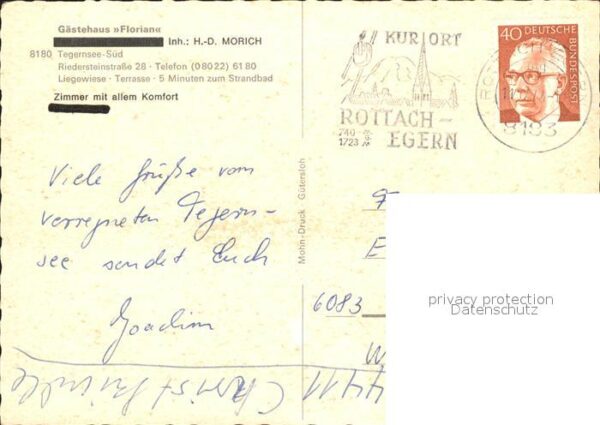 Gästehaus »Florian«
Inh.: H.-D. MORICH
8180 Tegernsee-Süd
Riedersteinstraße 28 · Telefon (08022) 6180
Liegewiese · Terrasse · 5 Minuten zum Strandbad
Zimmer mit allem Komfort
KURORT
ROTTACH-
EGERN
740 m
1723 m
40 DEUTSCHE
BUNDESPOST
8183
Mohn-Druck Gütersloh
Viele Grüße vom
verregneten Tegern-
see sendet Euch
Joachim
F
E
6083
W
4411
privacy protection
Datenschutz